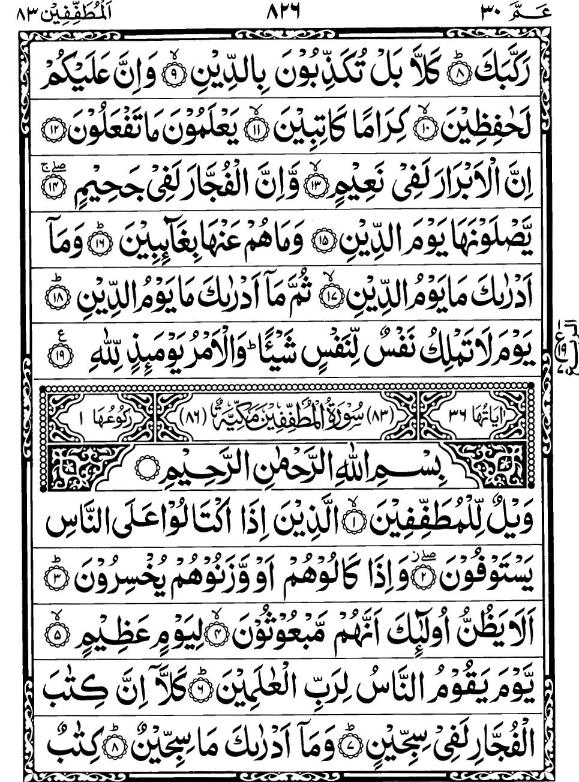 عَمَّ ٣٠ ٨٢٦ اَلْمُطَفِّفِيْن ٨٣
رَكَّبَكَ ۝٨ؕ كَلَّا بَلْ تُكَذِّبُوْنَ بِالدِّيْنِ ۝٩ۙ وَاِنَّ عَلَيْكُمْ
لَحٰفِظِيْنَ ۝١٠ۙ كِرَامًا كَاتِبِيْنَ ۝١١ۙ يَعْلَمُوْنَ مَا تَفْعَلُوْنَ ۝١٢
اِنَّ الْاَبْرَارَ لَفِىْ نَعِيْمٍ ۝١٣ۙ وَّاِنَّ الْفُجَّارَ لَفِىْ جَحِيْمٍ ۝١٤
يَّصْلَوْنَهَا يَوْمَ الدِّيْنِ ۝١٥ وَمَا هُمْ عَنْهَا بِغَآئِبِيْنَ ۝١٦ؕ وَمَآ
اَدْرٰىكَ مَا يَوْمُ الدِّيْنِ ۝١٧ۙ ثُمَّ مَآ اَدْرٰىكَ مَا يَوْمُ الدِّيْنِ ۝١٨ؕ
يَوْمَ لَا تَمْلِكُ نَفْسٌ لِّنَفْسٍ شَيْئًاؕ وَالْاَمْرُ يَوْمَئِذٍ لِّلّٰهِ ۝١٩
اٰيَاتُهَا ٣٦ (٨٣) سُوْرَةُ الْمُطَفِّفِيْنَ مَكِّيَّةٌ (٨٦) رُكُوْعُهَا ١
بِسْمِ اللّٰهِ الرَّحْمٰنِ الرَّحِيْمِ
وَيْلٌ لِّلْمُطَفِّفِيْنَ ۝١ۙ الَّذِيْنَ اِذَا اكْتَالُوْا عَلَى النَّاسِ
يَسْتَوْفُوْنَ ۝٢ وَاِذَا كَالُوْهُمْ اَوْ وَّزَنُوْهُمْ يُخْسِرُوْنَ ۝٣ؕ
اَلَا يَظُنُّ اُولٰٓئِكَ اَنَّهُمْ مَّبْعُوْثُوْنَ ۝٤ۙ لِيَوْمٍ عَظِيْمٍ ۝٥ۙ
يَّوْمَ يَقُوْمُ النَّاسُ لِرَبِّ الْعٰلَمِيْنَ ۝٦ؕ كَلَّآ اِنَّ كِتٰبَ
الْفُجَّارِ لَفِىْ سِجِّيْنٍ ۝٧ؕ وَمَآ اَدْرٰىكَ مَا سِجِّيْنٌ ۝٨ؕ كِتٰبٌ